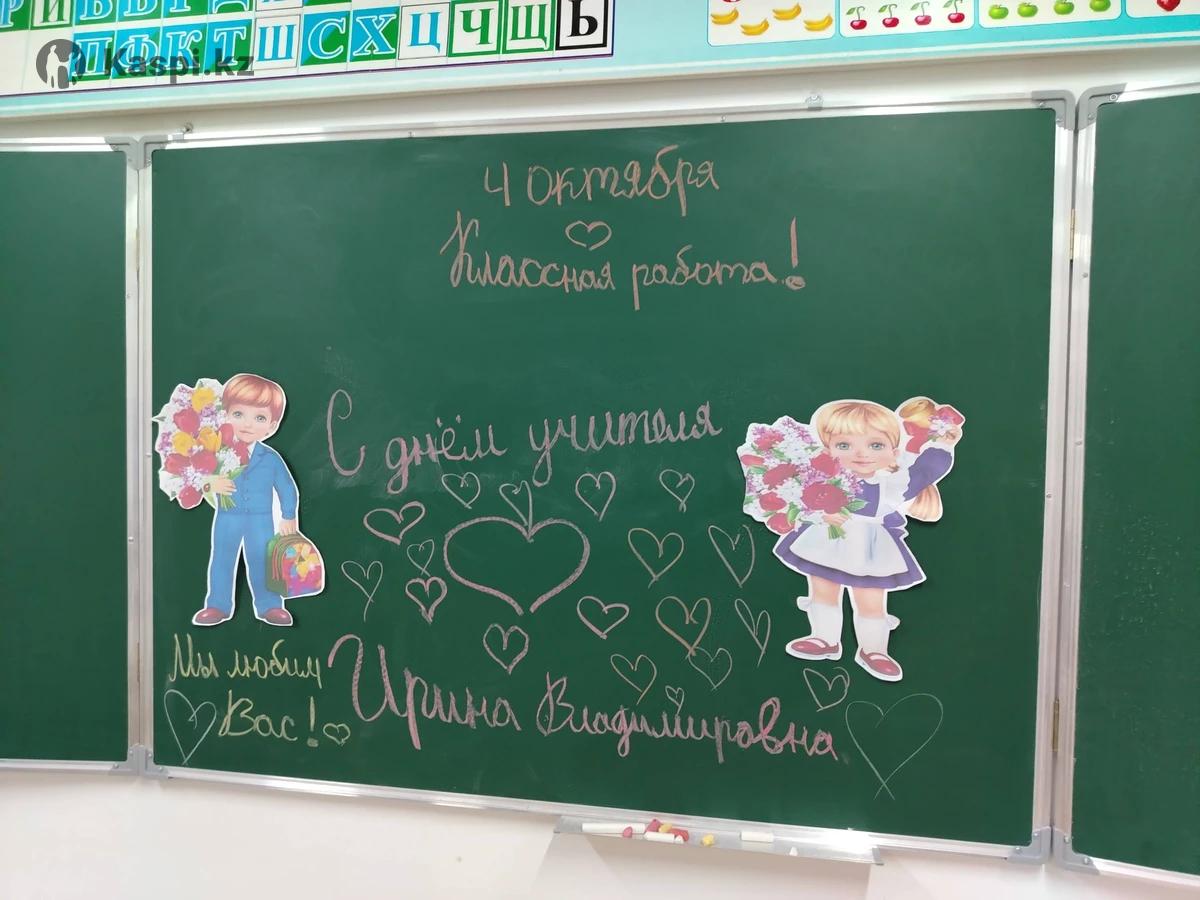 П Ф К Т Ш С Х Ц Ч Щ Ь
Kaspi.kz
4 октября
Классная работа!
С днём учителя
Мы любим
Вас!
Ирина Владимировна